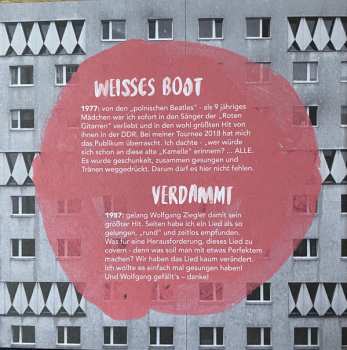 WEISSES BOOT
1977: von den „polnischen Beatles“ - als 9 jähriges
Mädchen war ich sofort in den Sänger der „Roten
Gitarren“ verliebt und in den wohl größten Hit von
ihnen in der DDR. Bei meiner Tournee 2018 hat mich
das Publikum überrascht. Ich dachte - „wer würde
sich schon an diese alte „Kamelle“ erinnern? ... ALLE.
Es wurde geschunkelt, zusammen gesungen und
Tränen weggedrückt. Darum darf es hier nicht fehlen.
VERDAMMT
1987: gelang Wolfgang Ziegler damit sein
größter Hit. Selten habe ich ein Lied als so
gelungen, „rund“ und zeitlos empfunden.
Was für eine Herausforderung, dieses Lied zu
covern - denn was soll man mit etwas Perfektem
machen? Wir haben das Lied kaum verändert.
Ich wollte es einfach mal gesungen haben!
Und Wolfgang gefällt's – danke!